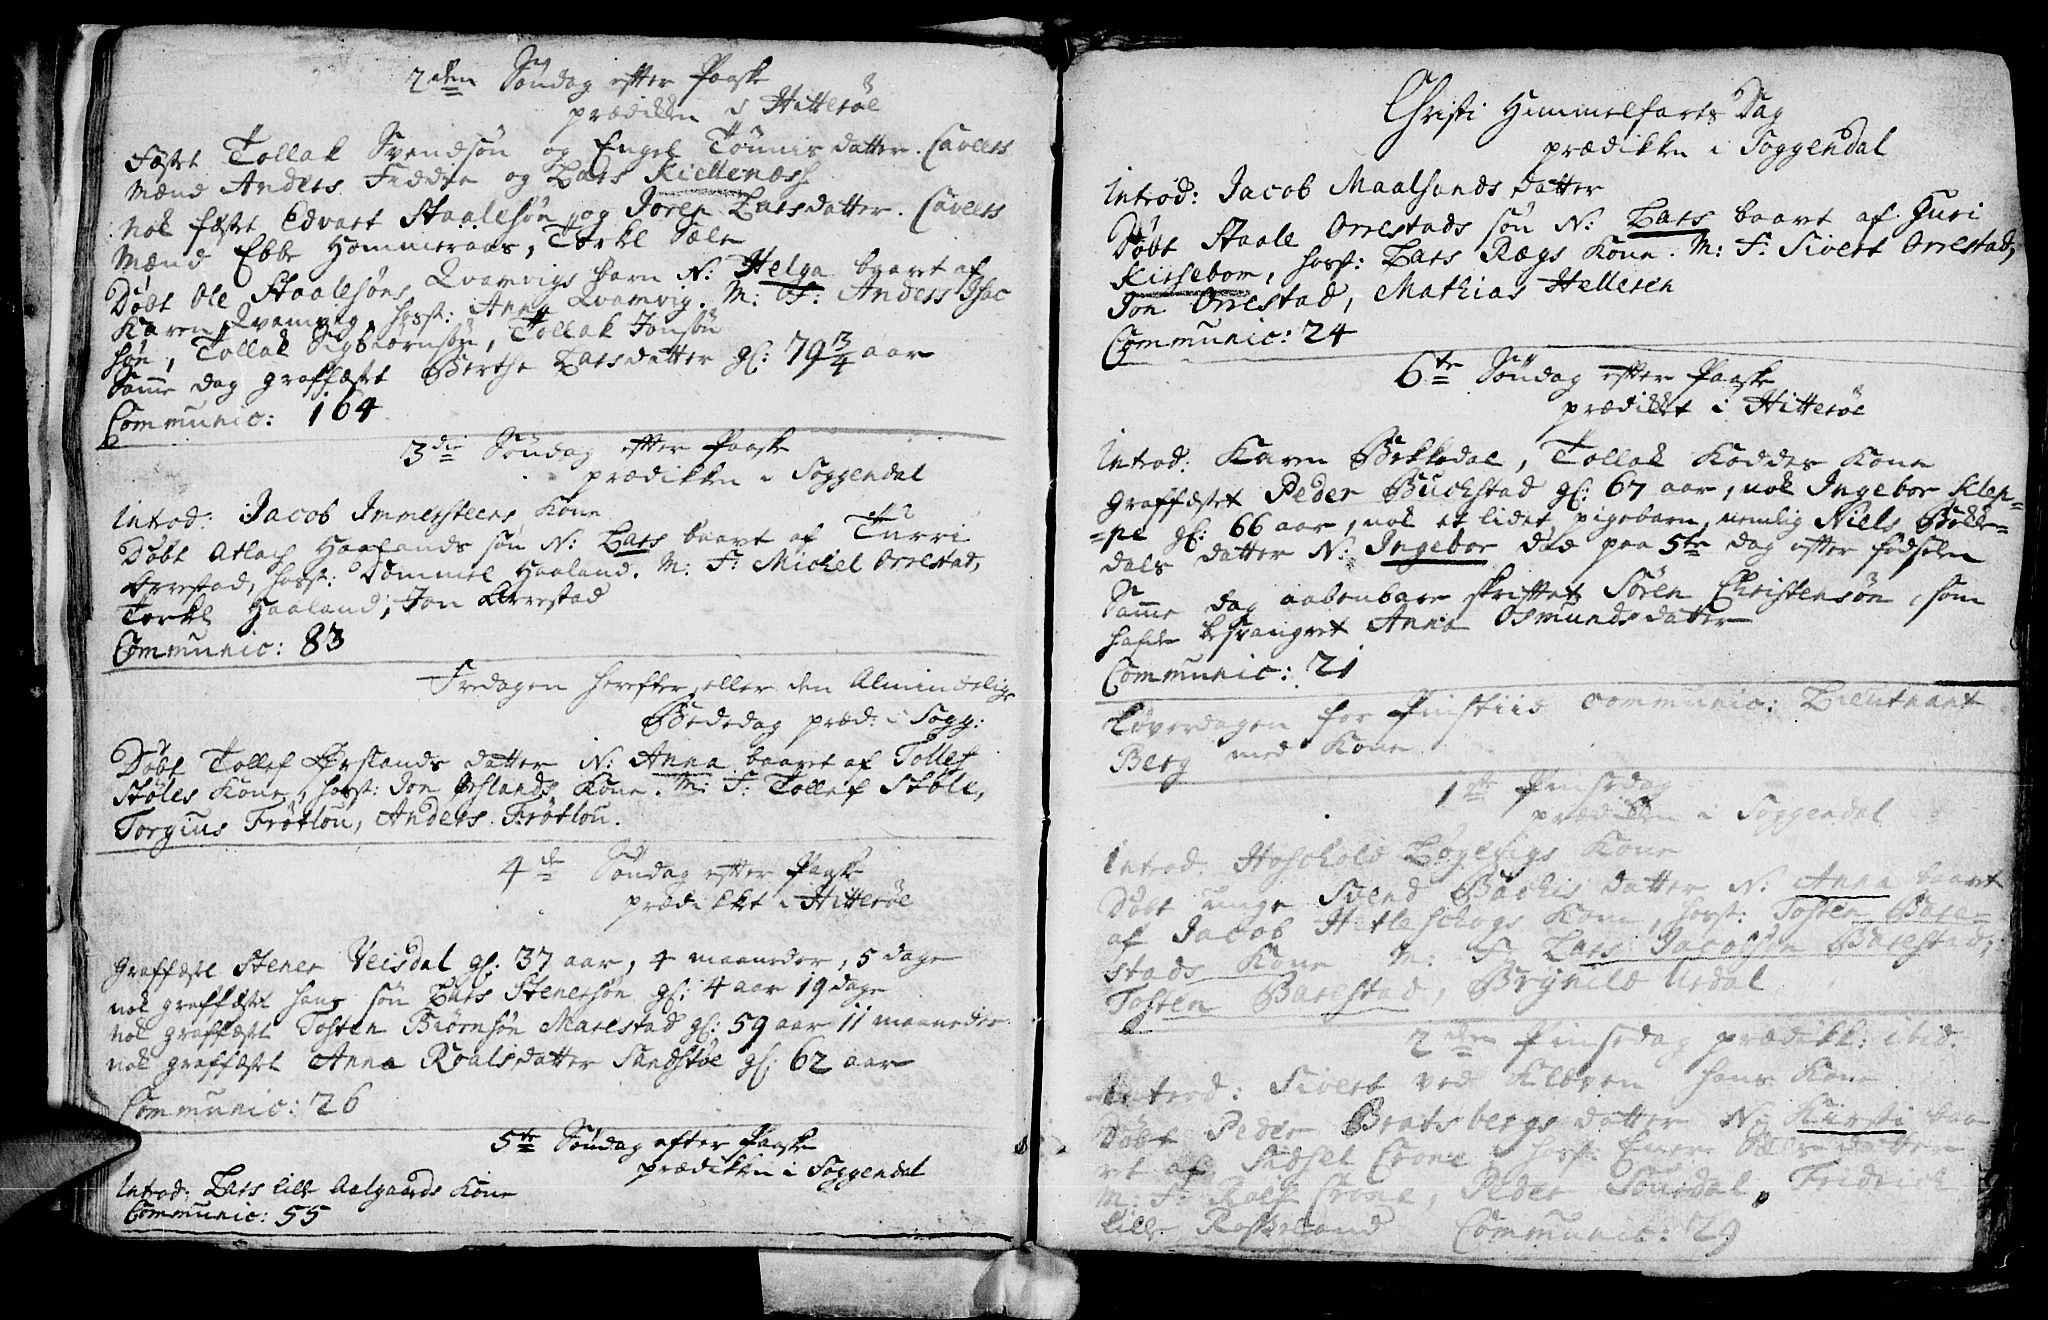 2den Søndag efter Paaske
prædikken i Hitterøe
Fæstet Tollak Svendsøn og Engel Tønnisdatter. Caveers
Mænd Anders Feddee og Lars Kiellenæsh
nok fæstet Edvart Staalesøn og Joren Larsdatter. Caveers
Mænd Ebbe Hommeraas, Torkel Sæle
Døbt Ole Staalesøns Qvamvigs barn N: Helga baaret af
Karen Qvamvig, hosf: Anna Qvamvig. M: F: Anders Isac
søn, Tollak Sigbiørnsøn, Tollak Jonsøn
Samme dag graffæstet Berthe Larsdatter gl: 79 3/4 aar
Communic: 164
3die Søndag efter Paaske
prædikken i Soggendal
Introd: Jacob Immersteens Kone
Døbt Atlach Haalands søn N: Lars baaret af Turri
Orrestad, hosf: Dommel Haaland. M: F: Michel Orrestad,
Torkel Haaland, Jon Orrestad
Communic: 83
Fredagen herefter, eller den Almindelige
Bededag præd: i Sogg:
Døbt Tollef Ørslands datter N: Anna baaret af Tollef
Støles Kone, hosf: Jon Ørslands Kone. M: F: Tollef Støle,
Torgius Frøtlou, Anders Frøtlou.
4de Søndag efter Paaske
prædikket i Hitterøe
graffæstet Stener Veisdal gl: 37 aar, 4 maaneder, 5 dage
nok graffæstet hans søn Lars Stenersøn gl: 4 aar 19 dage
nok graffæstet Tosten Biørnsøn Marestad gl: 59 aar 11 maaneder
nok graffæstet Anna Roalsdatter Sandstøe gl: 62 aar
Communic: 26
5te Søndag efter Paaske
prædikken i Soggendal
Introd: Lars lille Aalgaards Kone
Communic: 55
Christi Himmelfarts Dag
prædikken i Soggendal
Introd: Jacob Maalsands datter
Døbt Staale Orrestads søn N: Lars baaret af Guri
Kirsebom, hosf: Lars Rægs Kone. M: F: Sivert Orrestad,
Jon Orrestad, Mathias Helleren
Communic: 24
6te Søndag efter Paaske
prædikket i Hitterøe
Introd: Karen Bekkedal, Tollak Koddes Kone
graffæstet Peder Buckstad gl: 67 aar, nok Ingebor Klep-
-pe gl: 66 aar, nok et lidet pigebarn, nemlig Niels Bekke-
dals datter N: Ingebor død paa 5te dag efter fødselen
Samme dag aabenbare skriftet Søren Christensøn, som
hafde besvangret Anna Osmundsdatter
Communic: 21
Løverdagen for Pinstiid communic: Lieutnant
Berg med Kone
1ste Pinsedag
prædikken i Soggendal
Introd. Hoschold Løgevigs Kone
Døbt unge Svend Bachis datter N: Anna baaret
af Jacob Hetleschogs Kone, hosf: Tosten Bare-
stads Kone M: F: Lars Jacobsøn Barestad,
Tosten Barestad, Brynild Urdal
2den Pinsedag prædikk: ibid.
Introd: Sivert ved Kløven hans Kone
Døbt Peder Bratsbergs datter N: Kirsti baa
ret af Sidsel Crone hosf: datter
M: F: Ralf Crone, Peder Tonsdal, Fridrich
lille Rosseland Communic: 29